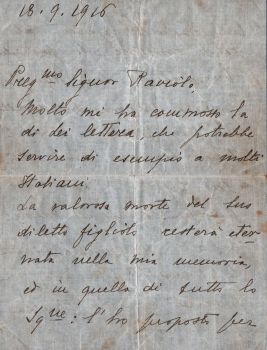 18.9.1916
Preg.mo Signor Raviolo,
Molto mi ha commosso la
di Lei lettera, che potrebbe
servire di esempio a molti
Italiani.
La valorosa morte del suo
diletto figliolo resterà eter-
nata nella mia memoria,
ed in quella di tutti lo
l'ho proposto per